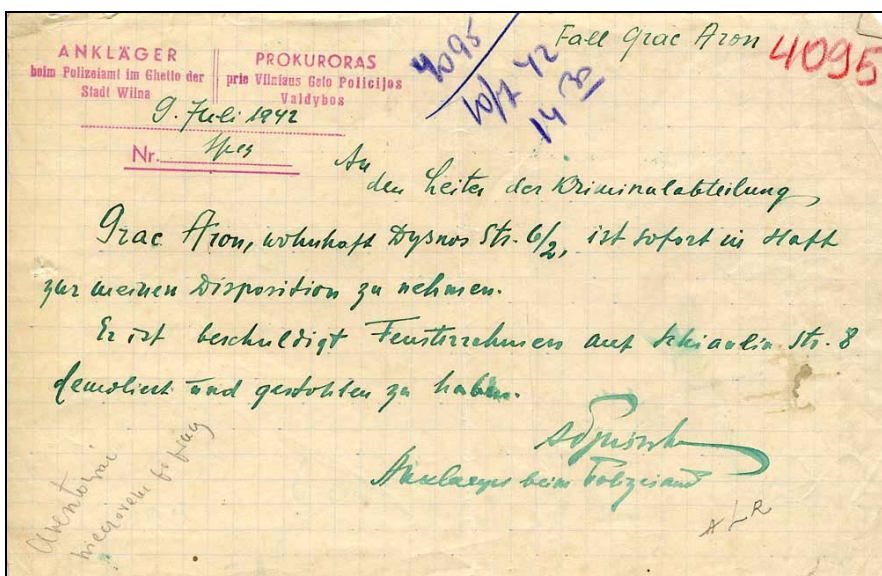 ANKLÄGER
beim Polizeiamt im Ghetto der
Stadt Wilna
PROKURORAS
prie Vilniaus Geto Policijos
Valdybos
9. Juli 1942
Nr.
4095
10/7 42
14 30
Fall Grac Aron
4095
An
den Leiter der Kriminalabteilung
Grac Aron, wohnhaft Dysnos Str. 6/2, ist sofort in Haft
zur meinen Disposition zu nehmen.
Er ist beschuldigt Fensterrahmen auf Str. 8
demoliert und gestohlen zu haben.
beim Polizeiamt